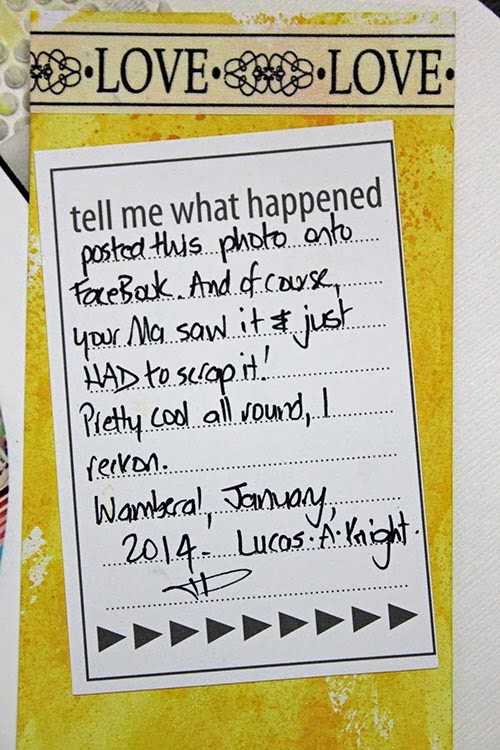 •LOVE• •LOVE•
tell me what happened
posted this photo onto
FaceBook. And of course,
your Ma saw it & just
HAD to scrap it!
Pretty cool all round, I
reckon.
Wamberal, January,
2014- Lucas·A·Knight.